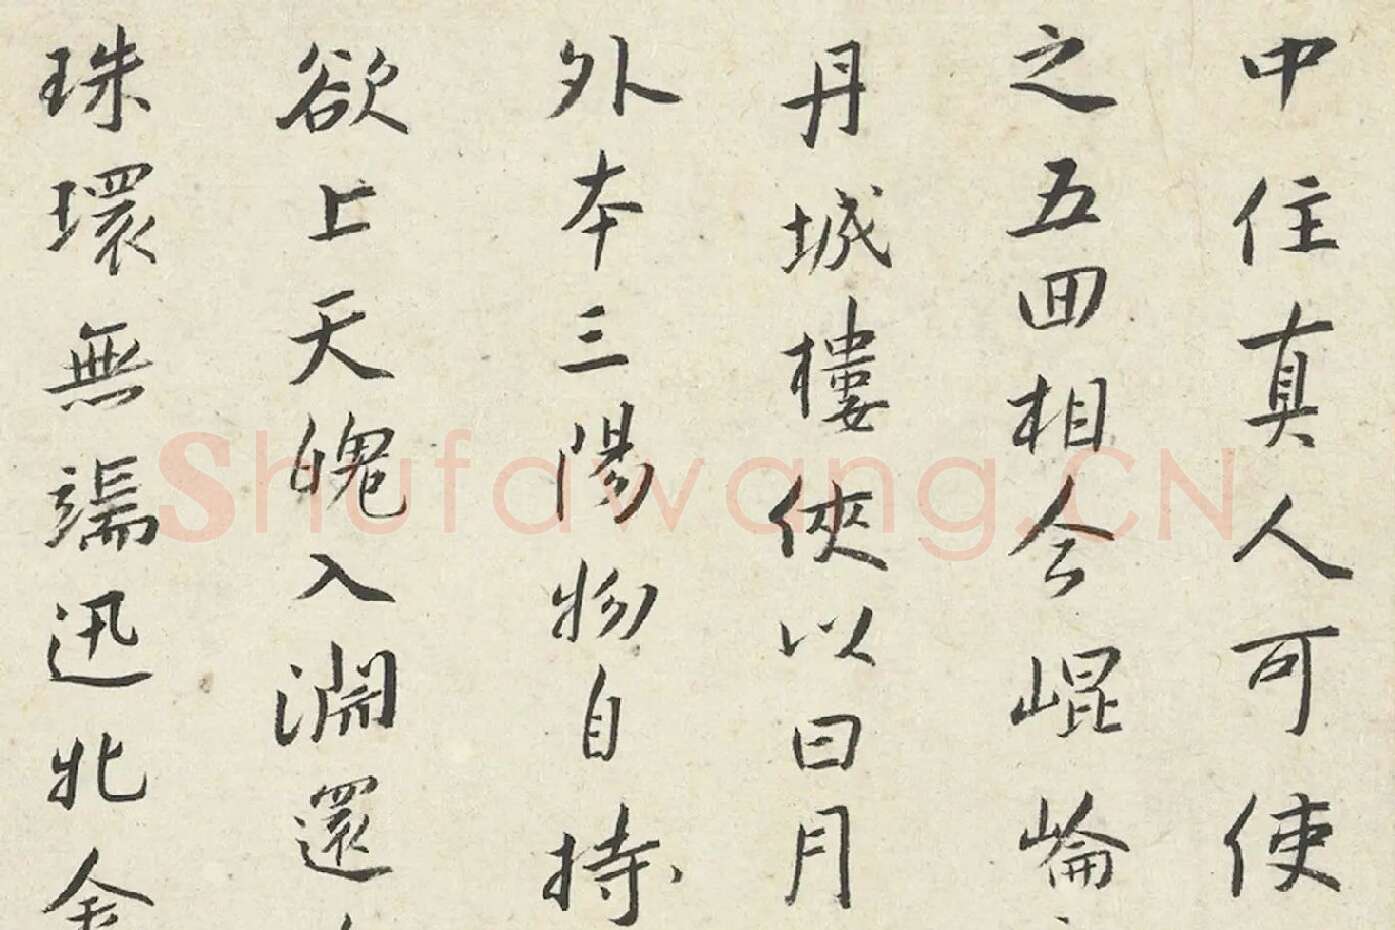 中住真人可使
之五回相会崐崘
丹城樓俠以日月
外本三陽物自持
欲上天魄入淵還
珠環無端迅牝金
shufawang.CN